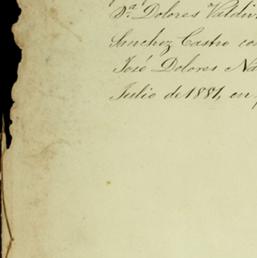 D.ª Dolores Valdiv
Sanchez Castro con
José Dolores Na
Julio de 1881, en